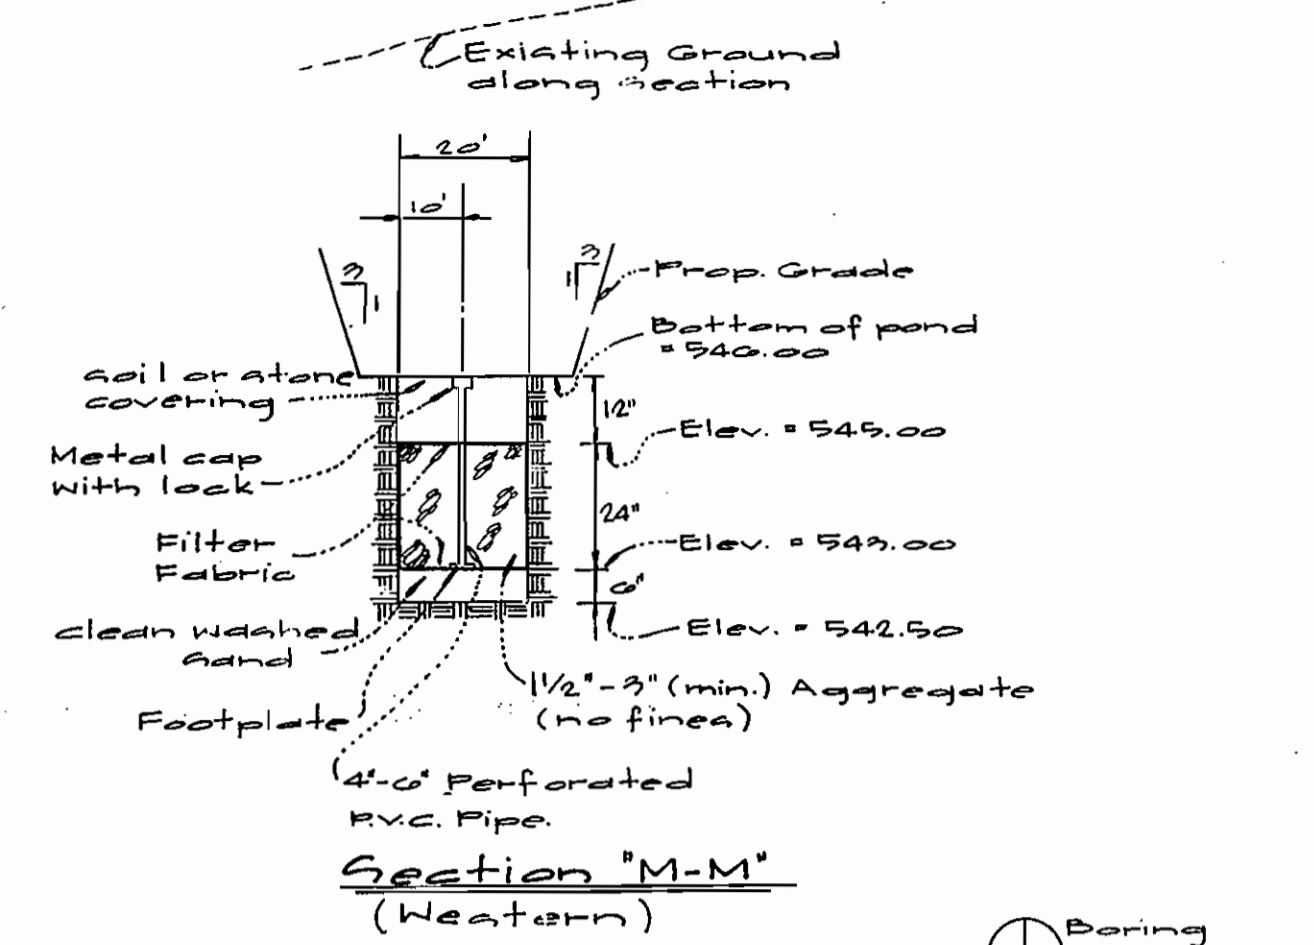 Existing Ground
along section
20'
10'
3
1
3
1
Prop. Grade
Bottom of pond
= 546.00
soil or stone
covering
12"
Elev. = 545.00
Metal cap
with lock
24"
Filter
Fabric
Elev. = 543.00
6"
clean washed
sand
Elev. = 542.50
1 1/2" - 3" (min.) Aggregate
(no fines)
Footplate
4"-6" Perforated
P.V.C. Pipe.
Section "M-M"
(Western)
Boring